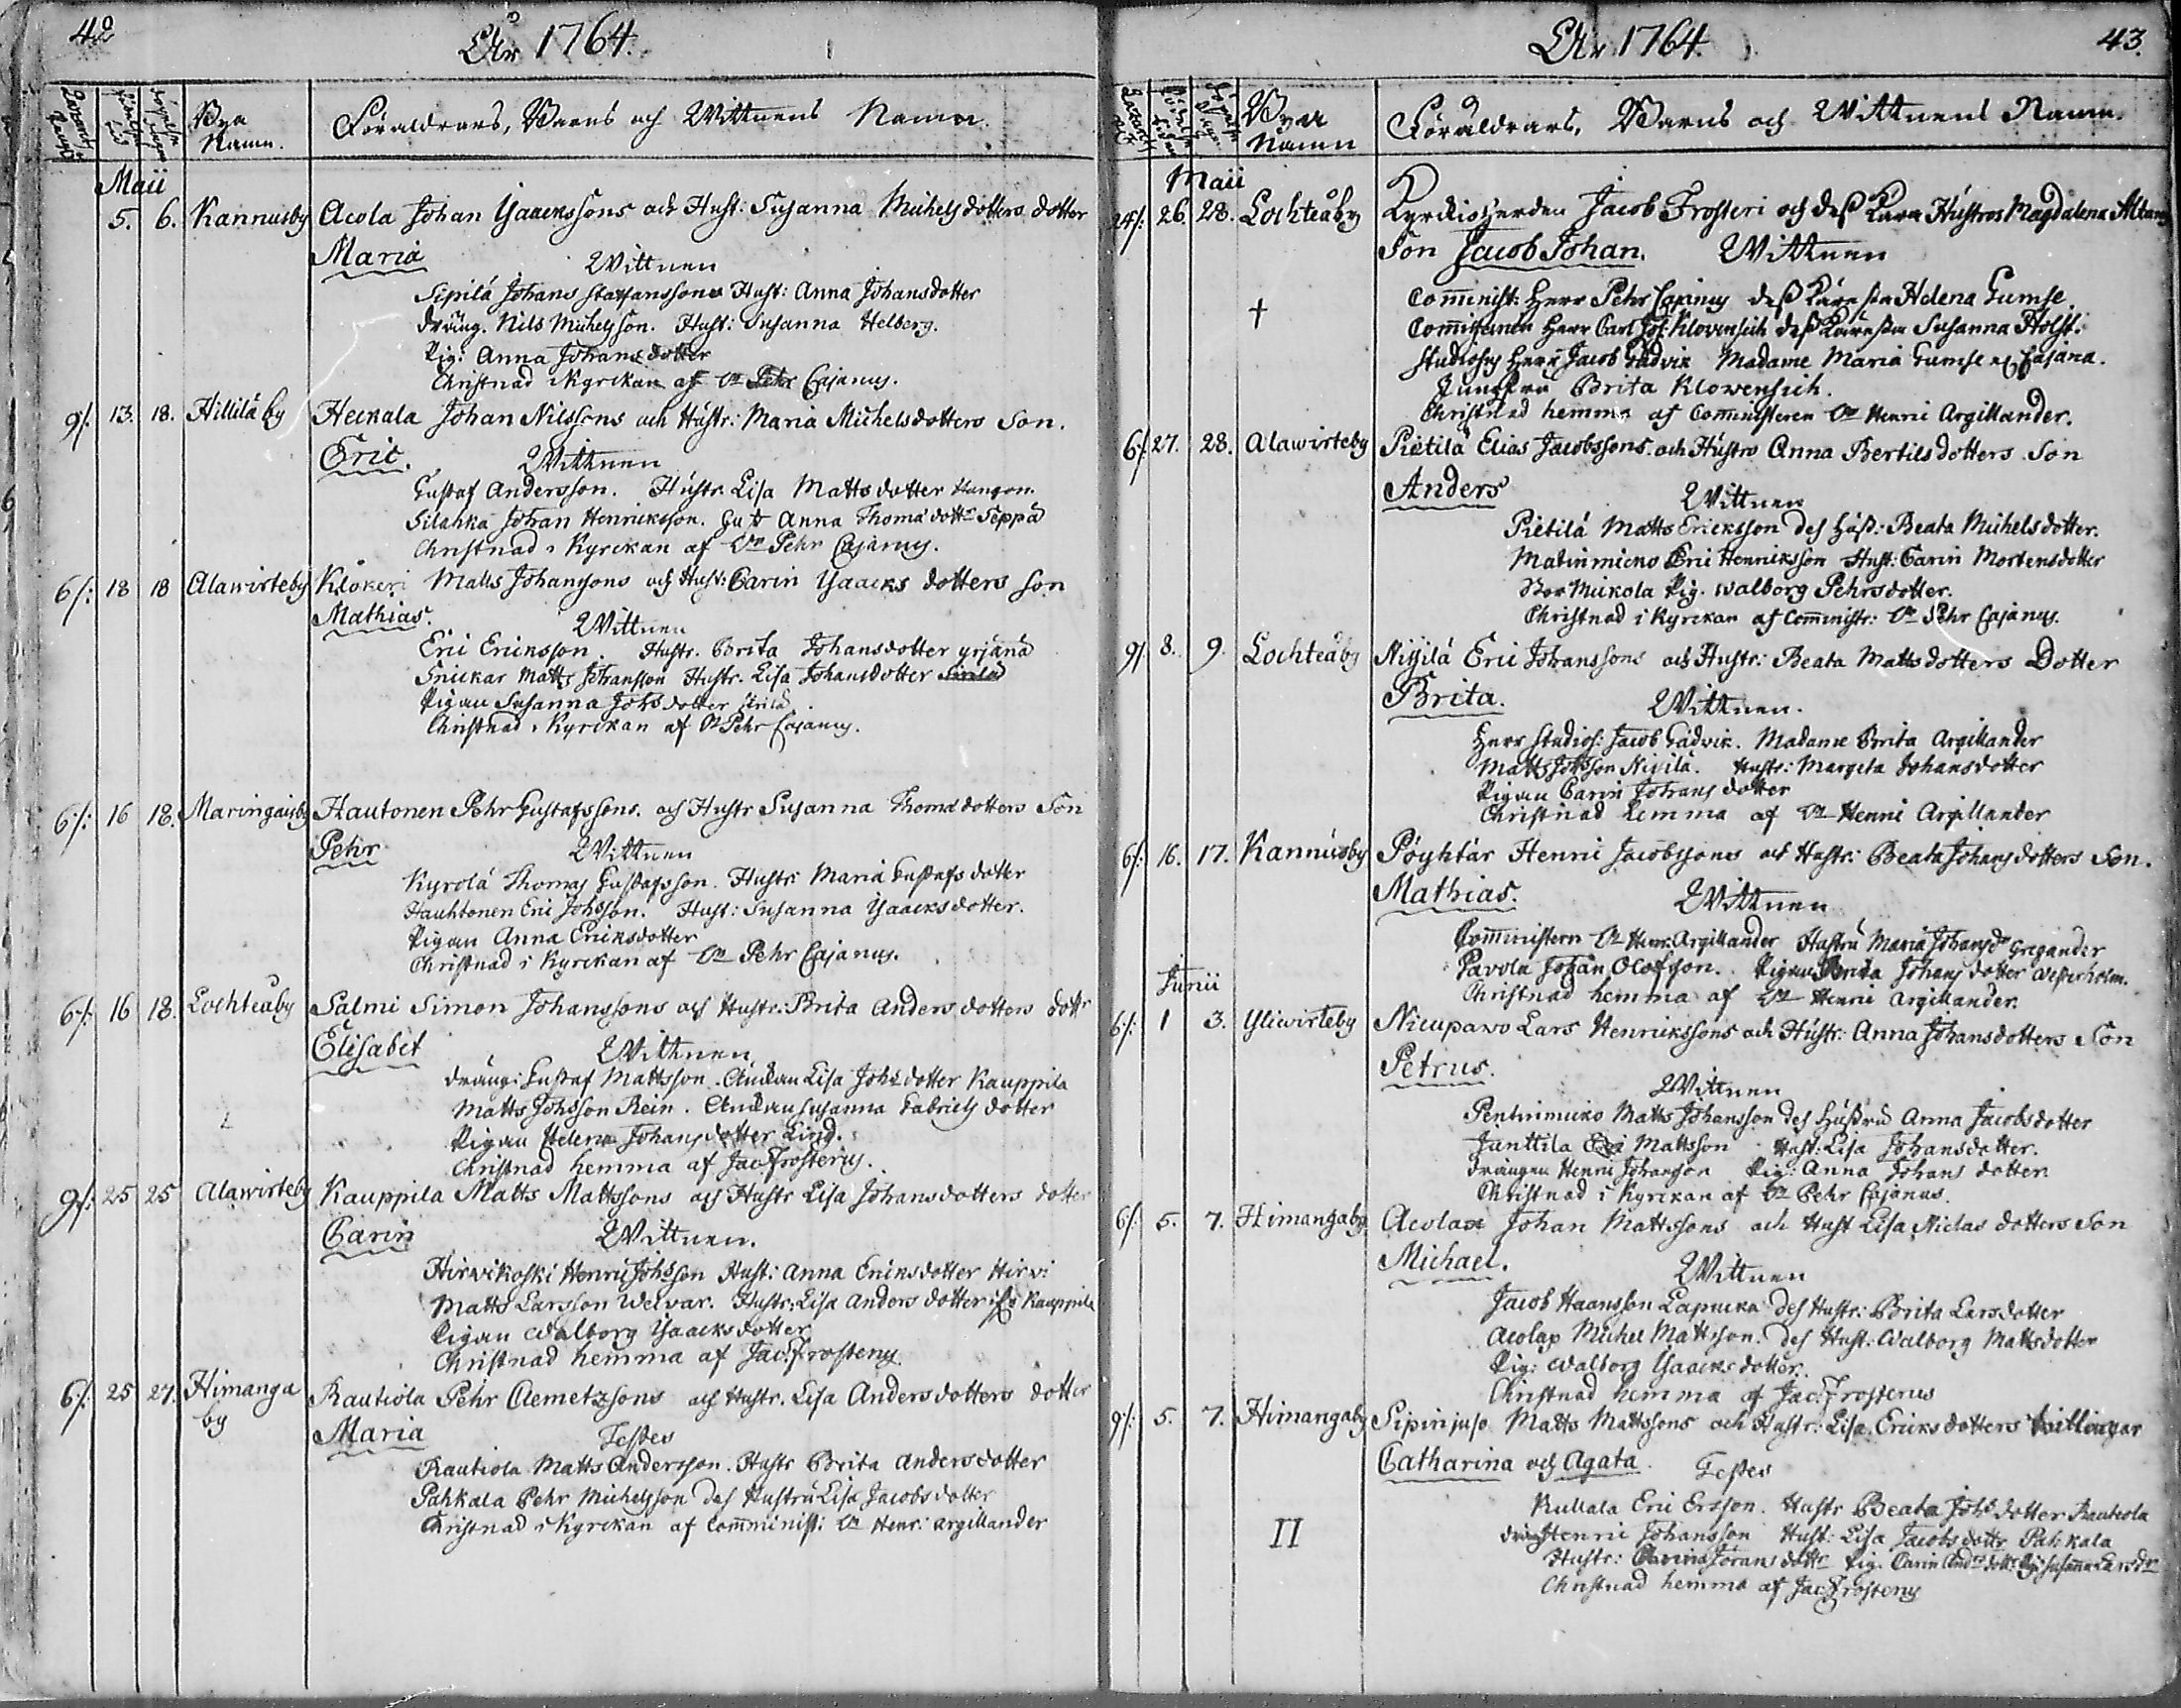 42
Åhr 1764.
Bya Namn.
Föräldrars, Barns och Wittnens Namn.
Maii
5. 6. Kannusby Acola Johan Ysaackssons och Hust: Susanna Michelsdotters dotter
Maria Wittnen
Sipilä Johans Staffanssons Hust: Anna Johansdotter
dräng. Nils Michelsson. Hust: Susanna Helberg.
Pig: Anna Johansdotter
Christnad i Kyrckan af Vn Pehr Cajanus.
9/: 13. 18. Hillilä by Heckala Johan Nilssons och Hustr: Maria Michelsdotters Son.
Eric. Wittnen
Gustaf Andersson. Hustr. Lisa Mattsdotter
Silahka Johan Henricksson. Anna Thomä dottr Seppä
Christnad i Kyrckan af Vn Pehr Cajanus.
6/: 18 18 Alawirteby Klökeri Matts Johanssons och Hust: Carin Ysaacks dotters son
Mathias. Wittnen
Eric Ericksson. Hustr. Brita Johansdotter yrjänä
Snickar Matts Johansson Hustr. Lisa Johansdotter
Pigan Susanna Johsdotter
Christnad i Kyrckan af Vn Pehr Cajanus.
6/: 16 18. Maringaisby Hautonen Pehr Gustafssons. och Hustr Susanna Thomä dotters Son
Pehr Wittnen
Kyrölä Thomas Gustafsson. Hustr: Maria Gustafs dotter
Hauhtonen Eric Johsson. Hust: Susanna Ysaacksdotter.
Pigan Anna Ericksdotter
Christnad i Kyrckan af Vn Pehr Cajanus.
6/: 16 18. Lochteåby Salmi Simon Johanssons och Hustr. Brita Anders dotters dottr
Elisabet Wittnen
dräng: Gustaf Mattsson. Änckan Lisa Johsdotter Kauppila
Matts Johsson Rein. Änckan Susanna Gabriels dotter
Pigan Helena Johansdotter Lind.
Christnad hemma af Jac. Frosterus.
9/: 25 25 Alawirteby Kauppila Matts Mattssons och Hustr Lisa Johansdotters dotter
Carin Wittnen.
Hirwikoski Henric Johsson Hust: Anna Ericksdotter Hirwi
Matts Larsson Welvar. Hustr: Lisa Anders dotter Kauppila
Pigan Walborg Ysaacksdotter
Christnad hemma af Jac. Frosterus.
6/: 25 27. Himanga by Rautiola Pehr Clemetzsons och Hustr. Lisa Andersdotters dotter
Maria Testes
Rautiola Matts Andersson. Hustr Brita Andersdotter
Pahkala Pehr Michelsson des Hustru Lisa Jacobsdotter
Christnad i Kyrckan af Comminist: Vn Henr: Argillander
43.
Åhr 1764.
Byar Namn
Föräldrars, Barns och Wittnens Namn.
Maii
24/: 26. 28. Lochteåby Kyrckioherden Jacob Frosteri och deß Kära Hustros Magdalena
Son Jacob Johan. Wittnen
† Comminist: Herr Pehr Cajanus deß Käresta Helena Gumse.
Herr Carl Joh: Klowensich deß Käresta Susanna Holst:
Studiosus Herr Jacob Gadvik Madame Maria Gumse Cajana.
Jungfru Brita Klowensich.
Christnad hemma af Comministeren Vn Henric Argillander.
6/: 27. 28. Alawirteby Pietilä Elias Jacobssons. och Hustro Anna Bertilsdotters Son
Anders Wittnen
Pietilä Matts Ericksson des Hust: Beata Michelsdotter.
Matinmicko Eric Henricksson Hust: Carin Mortensdotter
Mickola Pig. Walborg Pehrsdotter.
Christnad i Kyrckan af Comministr: Vn Pehr Cajanus.
9/ 8. 9. Lochteåby Niyilä Eric Johanssons och Hustr: Beata Mattsdotters Dotter
Brita. Wittnen.
Herr Studios: Jacob Gadvik. Madame Brita Argillander
Matts Johsson Niyilä. Hustr: Margeta Johansdotter
Pigan Carin Johansdotter
Christnad hemma af Vn Henric Argillander
6/: 16. 17. Kannusby Pöyhtär Henric Jacobssons och Hustr: Beata Johansdotters Son.
Mathias. Wittnen
Comministern Vn Henr: Argillander Hustru Maria Johansdr Gregander
Pavola Johan Olofsson. Pigan Brita Johans dotter Westerholm.
Christnad hemma af Vn Henric Argillander.
Junii
6/: 1 3. Yliwirteby Nicupavo Lars Henrickssons och Hustr: Anna Johansdotters Son
Petrus. Wittnen
Pentinmicko Matts Johansson des Hustru Anna Jacobsdotter
Junttila Eric Mattsson Hust: Lisa Johansdotter.
drängen Henric Johansson Pig: Anna Johans dotter.
Christnad i Kyrckan af Vn Pehr Cajanus.
6/: 5. 7. Himangaby Acolax Johan Mattssons och Hust Lisa Niclas dotters Son
Michael. Wittnen
Jacob Haansson Lapucka des Hustr: Brita Larsdotter
Acolax Michel Mattsson. des Hust: Walborg Mattsdotter
Pig: Walborg Ysaacksdotter.
Christnad hemma af Jac: Frosterus
9/: 5. 7. Himangaby Sipinjuso Matts Mattssons och Hustr: Lisa Ericksdotters twillingar
Catharina och Agata. Testes
Kullala Eric Ersson. Hustr Beata Johs dotter Rautiola
II dräng Henric Johansson Hust: Lisa Jacobs dottr Pahkala
Hustr: Carin Jöransdottr Pig. Carin Andrsdottr Pig: Susanna Larsdr
Christnad hemma af Jac. Frosterus